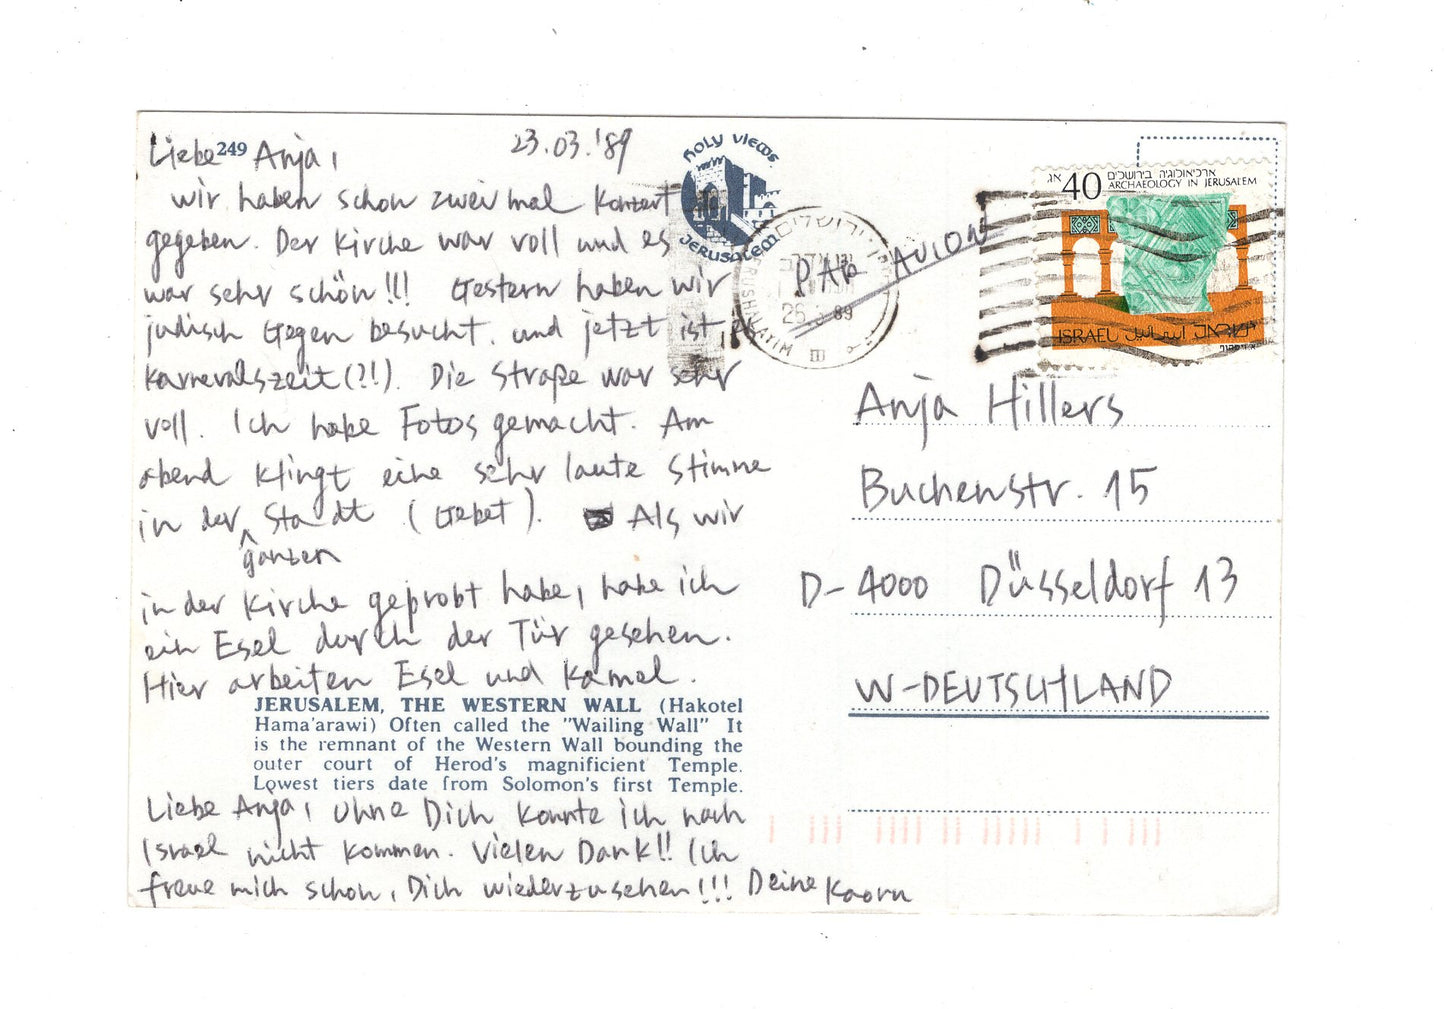 249
Liebe Anja, 23.03.'89
wir haben schon zwei mal Konzert
gegeben. Der Kirche war voll und es
war sehr schön!!! Gestern haben wir
jüdisch Gegen besucht. und jetzt ist
Karnevalszeit(?!). Die Straße war sehr
voll. Ich habe Fotos gemacht. Am
abend klingt eine sehr laute Stimme
in der ganzen Stadt (Gebet). Als wir
in der Kirche geprobt habe, habe ich
ein Esel durch der Tür gesehen.
Hier arbeiten Esel und Kamel.
JERUSALEM, THE WESTERN WALL (Hakotel
Hama'arawi) Often called the "Wailing Wall" It
is the remnant of the Western Wall bounding the
outer court of Herod's magnificient Temple.
Lowest tiers date from Solomon's first Temple.
Liebe Anja, ohne Dich konnte ich nach
Israel nicht kommen. Vielen Dank!! Ich
freue mich schon, Dich wiederzusehen!!! Deine Kaoru
HOLY VIEWS
JERUSALEM
ירושלים
26 89
JERUSHALAYIM
PAR AVION
40 אג
ארכיאולוגיה בירושלים
ARCHAEOLOGY IN JERUSALEM
ISRAEL اسرائيل ישראל
Anja Hillers
Buchenstr. 15
D-4000 Düsseldorf 13
W-DEUTSCHLAND